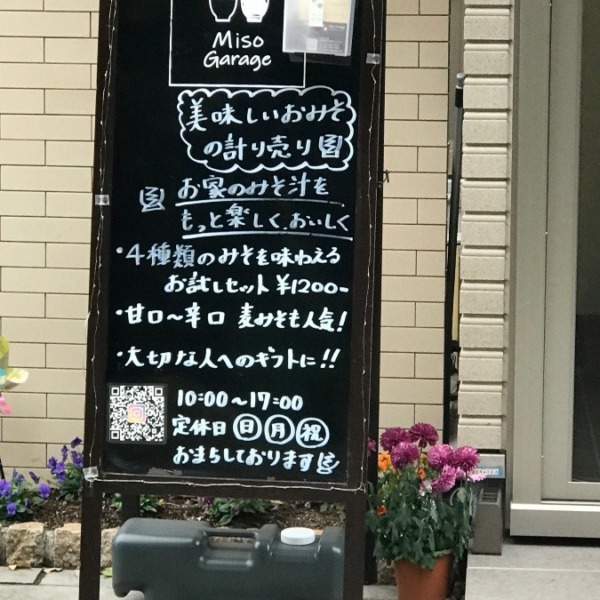 Miso
Garage
美味しいおみそ
の計り売り
お家のみそ汁を
もっと楽しく、おいしく
・4種類のみそを味わえる
お試しセット ¥1200-
・甘口〜辛口 麦みそも人気!
・大切な人へのギフトに!!
10:00〜17:00
定休日 日 月 祝
おまちしております